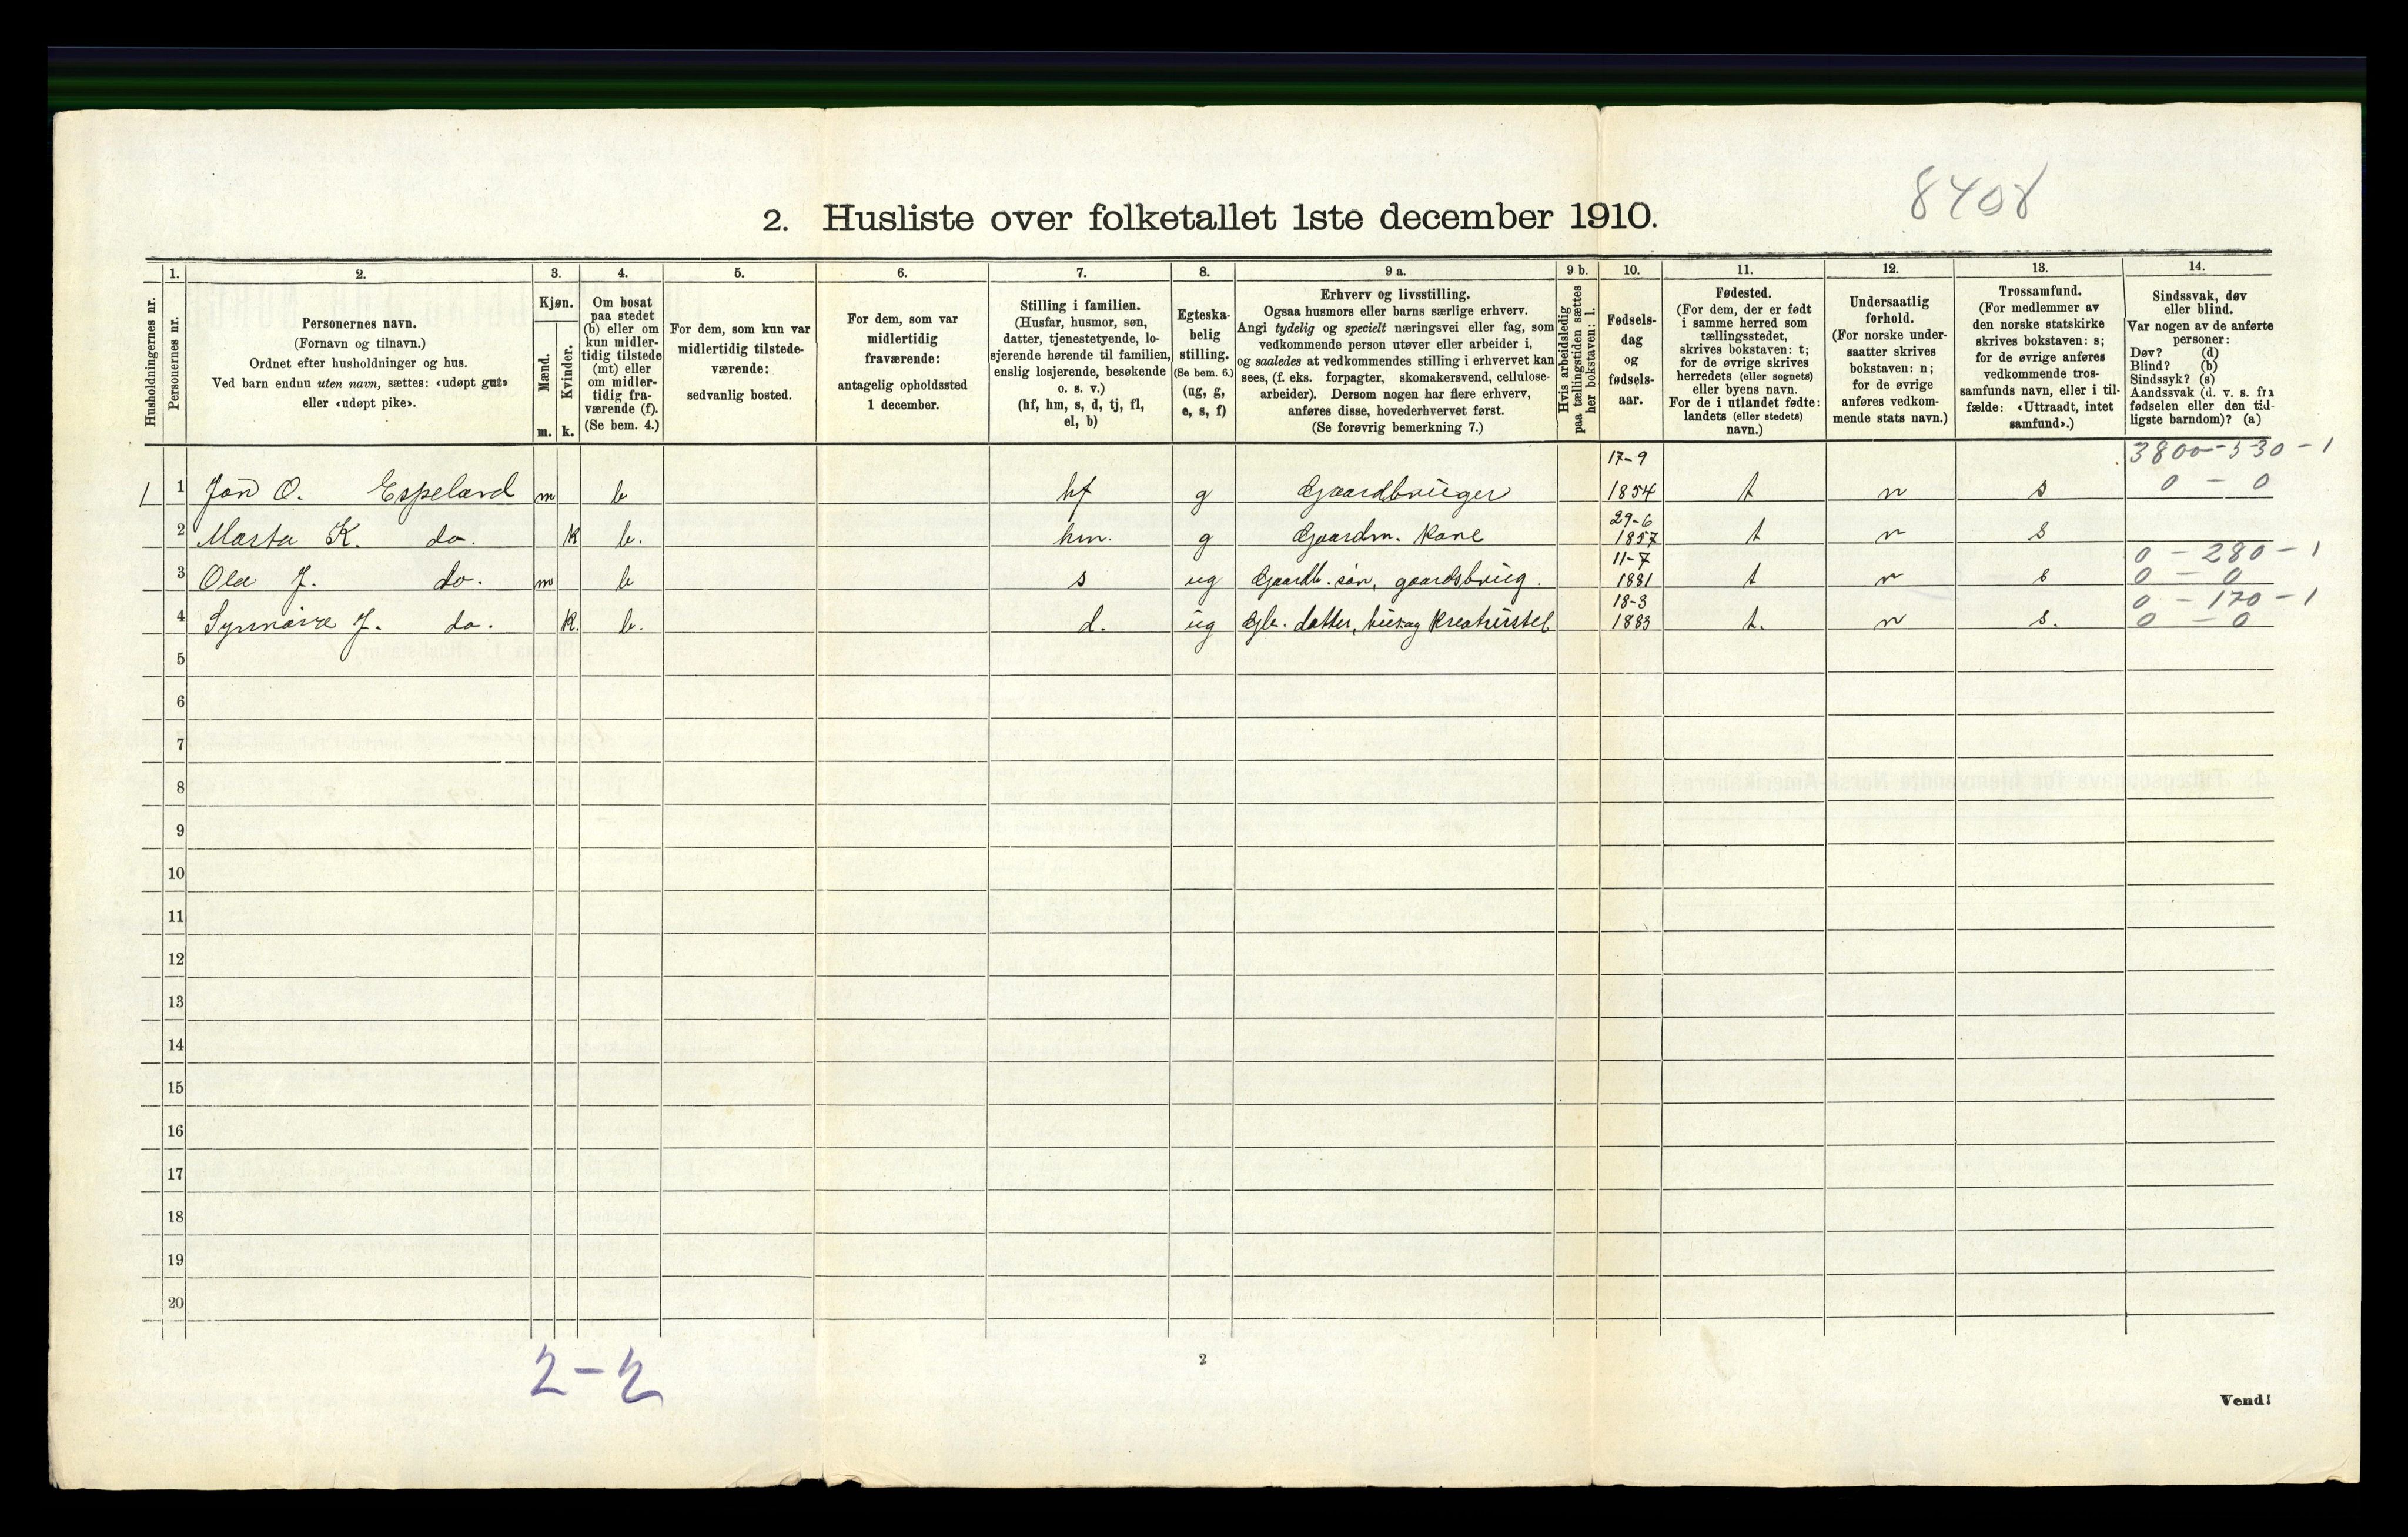 8408
2. Husliste over folketallet 1ste december 1910.
Husholdningernes nr.
1. Personernes nr.
2. Personernes navn.
(Fornavn og tilnavn.)
Ordnet efter husholdninger og hus.
Ved barn endnu uten navn, sættes: «udøpt gut»
eller «udøpt pike».
3. Kjøn.
Mænd. m.
Kvinder. k.
4. Om bosat
paa stedet
(b) eller om
kun midler-
tidig tilstede
(mt) eller
om midler-
tidig fra-
værende (f).
(Se bem. 4.)
5. For dem, som kun var
midlertidig tilstede-
værende:
sedvanlig bosted.
6. For dem, som var
midlertidig
fraværende:
antagelig opholdssted
1 december.
7. Stilling i familien.
(Husfar, husmor, søn,
datter, tjenestetyende, lo-
sjerende hørende til familien,
enslig losjerende, besøkende
o. s. v.)
(hf, hm, s, d, tj, fl,
el, b)
8. Egteska-
belig
stilling.
(Se bem. 6.)
(ug, g,
e, s, f)
9 a. Erhverv og livsstilling.
Ogsaa husmors eller barns særlige erhverv.
Angi tydelig og specielt næringsvei eller fag, som
vedkommende person utøver eller arbeider i,
og saaledes at vedkommendes stilling i erhvervet kan
sees, (f. eks. forpagter, skomakersvend, cellulose-
arbeider). Dersom nogen har flere erhverv,
anføres disse, hovederhvervet først.
(Se forøvrig bemerkning 7.)
9 b. Hvis arbeidsledig
paa tællingstiden sættes
her bokstaven: l.
10. Fødsels-
dag
og
fødsels-
aar.
11. Fødested.
(For dem, der er født
i samme herred som
tællingsstedet,
skrives bokstaven: t;
for de øvrige skrives
herredets (eller sognets)
eller byens navn.
For de i utlandet fødte:
landets (eller stedets)
navn.)
12. Undersaatlig
forhold.
(For norske under-
saatter skrives
bokstaven: n;
for de øvrige
anføres vedkom-
mende stats navn.)
13. Trossamfund.
(For medlemmer av
den norske statskirke
skrives bokstaven: s;
for de øvrige anføres
vedkommende tros-
samfunds navn, eller i til-
fælde: «Uttraadt, intet
samfund».)
14. Sindssvak, døv
eller blind.
Var nogen av de anførte
personer:
Døv? (d)
Blind? (b)
Sindssyk? (s)
Aandssvak (d. v. s. fra
fødselen eller den tid-
ligste barndom)? (a)
17-9 3800-530-1
1 1 Jon O. Espeland m b hf g Gaardbruger 1854 t n s 0 - 0
29-6
2 Marta K. do. k b. hm. g Gaardm. Kone 1857 t n s
11-7 0 - 280 - 1
3 Ola J. do. m b s ug Gaardb. søn, gaardsbrug. 1881 t n s 0 - 0
18-3 0 - 170 - 1
4 Synnøve J. do. k. b. d. ug Gbr. datter, hus og Kreaturstel 1883 t. n s. 0 - 0
5
6
7
8
9
10
11
12
13
14
15
16
17
18
19
20
2-2
2
Vend!